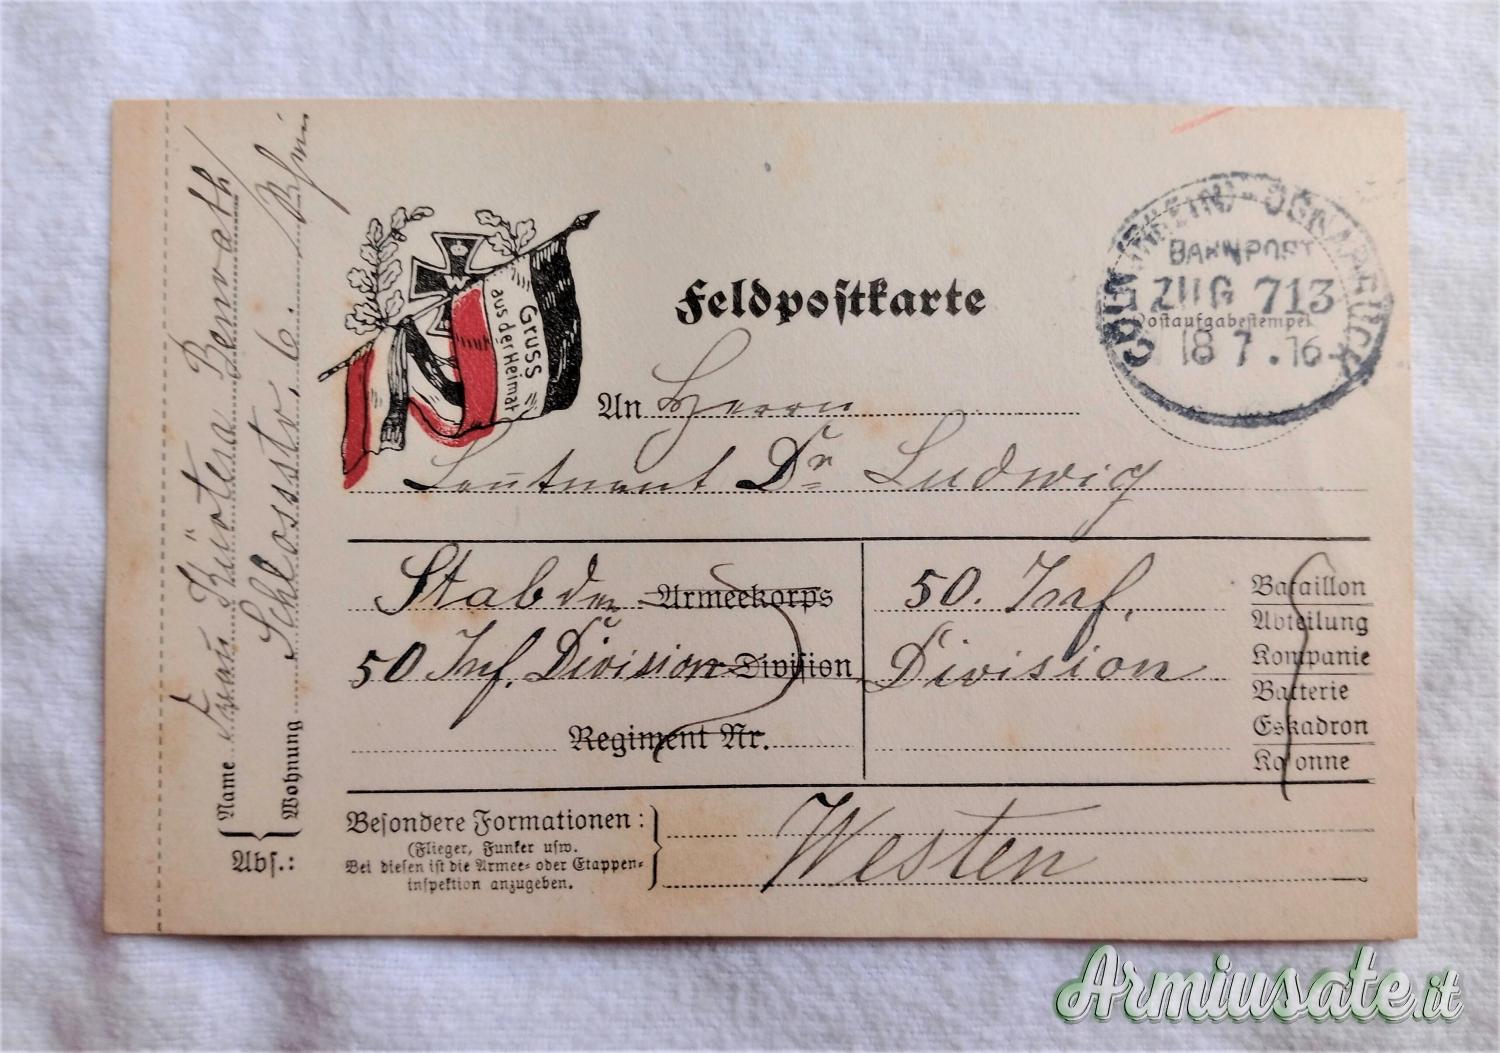 CÖLN (RHEIN)-OSNABRÜCK
BAHNPOST
ZUG 713
Postaufgabestempel
18 7.16
W
Gruss
aus der Heimat
Feldpostkarte
An Herrn
Leutnant Dr. Ludwig
Stab der Armeekorps
50 Inf. Division Division
Regiment Nr.
50. Inf.
Division
Bataillon
Abteilung
Kompanie
Batterie
Eskadron
Kolonne
Besondere Formationen:
(Flieger, Funker usw.
Bei diesen ist die Armee- oder Etappen-
inspektion anzugeben.
Westen
Abs.:
Name Frau Benrath
Wohnung Schlossstr. 6. Rhein
Armiusate.it